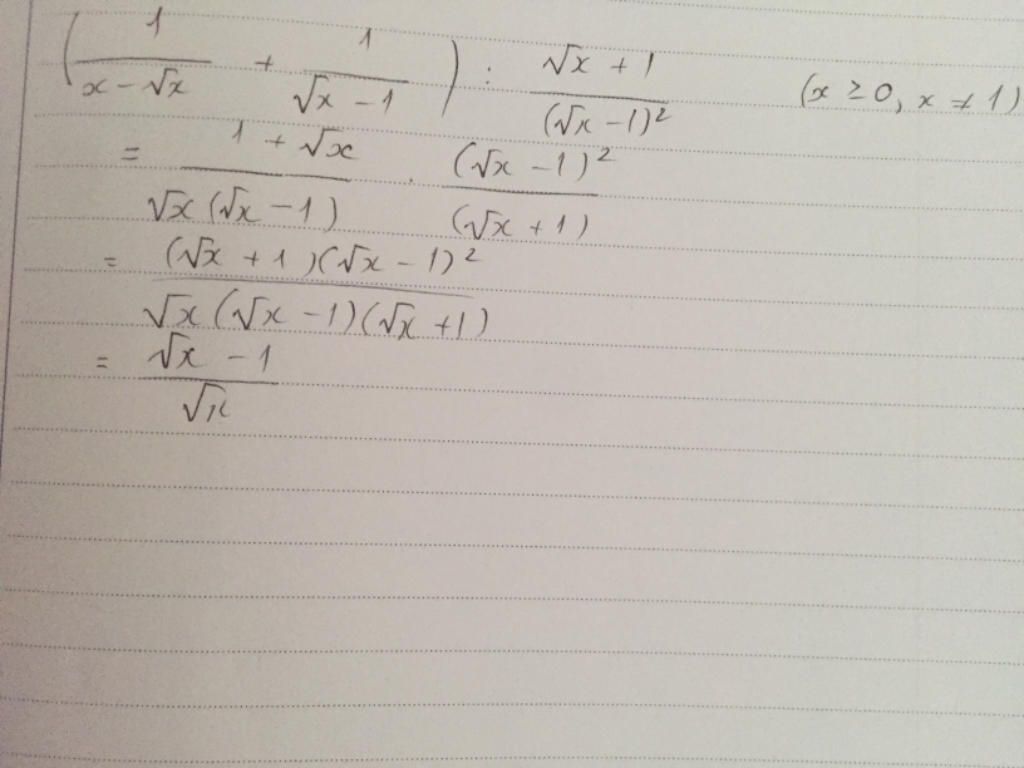 (1/(x - √x) + 1/(√x - 1)) : (√x + 1)/(√x - 1)² (x ≥ 0, x ≠ 1)
= (1 + √x)/(√x(√x - 1)) . (√x - 1)²/(√x + 1)
= (√x + 1)(√x - 1)²/(√x(√x - 1)(√x + 1))
= (√x - 1)/√x